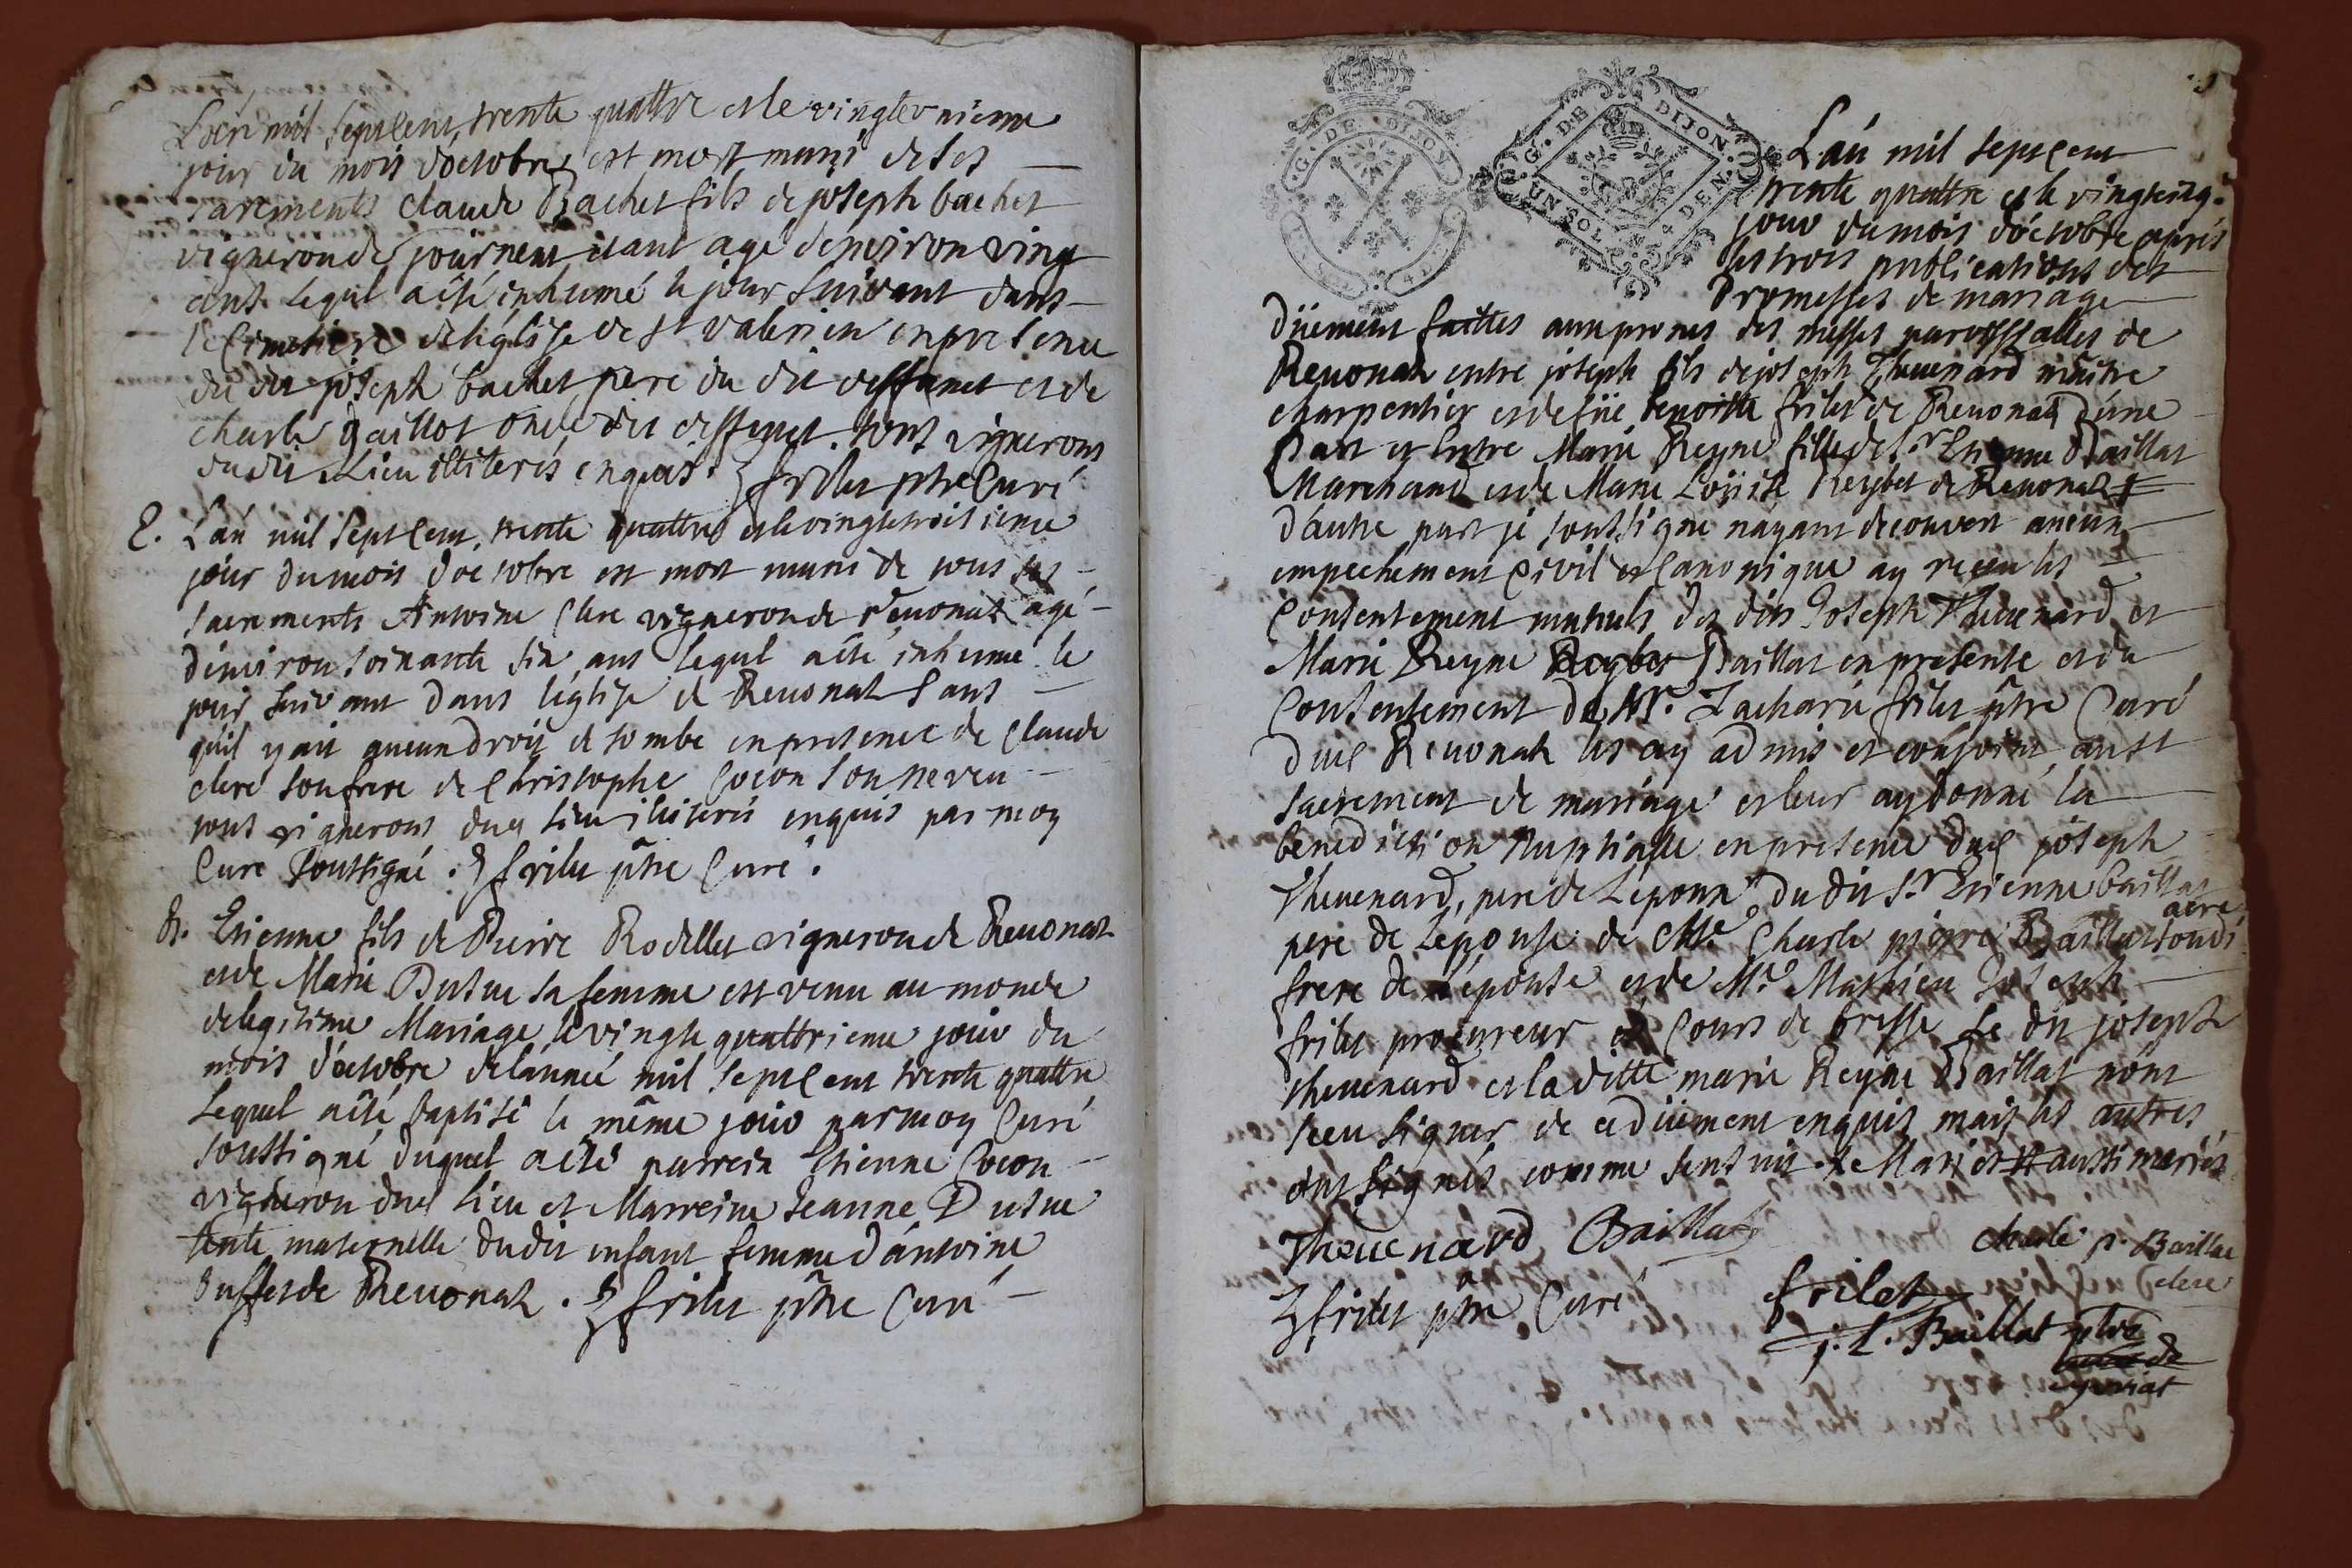 L'an mil sept cent, trente quattre et le vingt et unieme
jour du mois d'octobre est mort muni de ses
sacrements claude Bachet fils de joseph bachet
vigneron de journent etant agé d'environ vingt
ans lequel a été inhumé le jour suivant dans
le cimetiere de l'église de st valerien en presence
du dit joseph bachet pere du dit deffunct et de
charle gaillot oncle du dit deffunct. tous vignerons
du dit Lieu illiterés enquis. Z frilet ptre Curé
E. L'an mil sept cent, trente quattre et le vingt troisieme
jour du mois d'octobre est mort muni de tous ses
sacrements Antoine Clere vigneron de revonat agé
d'environ soixante six ans lequel a été inhumé le
jour suivant dans l'église de Revonat sans
qu'il y ait aucun droit de tombe en presence de Claude
clere son frere de Christophe Cocon son neveu
tous vignerons dud lieu illiterés enquis par moy
Curé soussigné. Z frilet ptre Curé.
B. Etienne fils de Pierre Rodillet vigneron de Revonat
et de Marie Dutue sa femme est venu au monde
de legitime Mariage le vingt quattrieme jour du
mois d'octobre de l'année mil sept cent trente quattre
Lequel a été baptisé le même jour par moy Curé
soussigné duquel a été parrein Etienne Cocon
vigneron dud lieu et Marreine Jeanne Dutue
tente maternelle du dit enfant femme d'antoine
buffet de Revonat. Z frilet ptre Curé
G. DE DIJON
G. DE DIJON
UN SOL 4 DEN.
L'an mil sept cent
trente quattre et le vingt cinq.
jour du mois d'octobre aprés
les trois publications des
Promesses de mariage
düement faittes aux prones des messes paroissialles de
Revonat entre joseph fils de joseph Thevenard maitre
charpentier et de füe benoitte frilet de Revonat d'une
Part et Entre Marie Reyne fille de Sr. Etienne Baillat
Marchand et de Marie Loüise Reybet de Revonat
d'autre part je soussigné n'ayant decouvert aucun
empechement Civil et Canonique ay receu les
Consentement mutuels des dits Joseph Thevenard et
Marie Reyne Reybet Baillat en presense et du
Consentement de Mr. Zacharie frilet ptre Curé
dud Revonat les ay admis et conjoint au st
sacrement de mariage et leur ay donné la
benediction Nuptialle en presence dud joseph
Thevenard, pere de L'epoux du dit Sr Etienne baillat
pere de L'epouse de Mre. Charle pierre Baillat soudiacre
frere de L'épouse et de Mr. Mathieu Joseph
frilet procureur és Cours de bresse Le dit joseph
thevenard et la ditte marie Reyne Baillat n'ont
sceu signer de ce düement enquis mais les autres
ont signés comme sensuit. Le Mari et aussi mariés
Thevenard Baillat charle p. Baillat
clere
Z frilet ptre Curé frilet
j. L. Baillat ptre